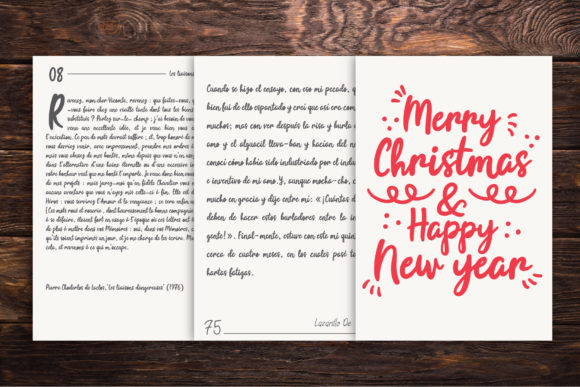 08
Les liaisons
Revenez, mon cher Vicomte, revenez : que faites-vous, que
-vous faire chez une vieille tante dont tous les biens
substitués ? Partez sur-le- champ ; j'ai besoin de vous
venu une excellente idée, et je veux bien vous en
l'exécution. Ce peu de mots devrait suffire ; et, trop honoré de
vous devriez venir, avec empressement, prendre mes ordres à
mais vous abusez de mes bontés, même depuis que vous n'en
dans l'alternative d'une haine éternelle ou d'une excessive
votre bonheur veut que ma bonté l'emporte. Je veux donc bien vous
de mes projets : mais jurez-moi qu'en fidèle Chevalier vous
aucune aventure que vous n'ayez mis celle-ci à fin. Elle est
Héros : vous servirez l'amour et la vengeance ; ce sera enfin
(Ce mot
se défaire, disent
de plus à mettre dans vos Mémoires : oui, dans vos Mémoires,
qu'ils soient imprimés un jour, et je me charge de les écrire. Mais
cela, et revenons à ce qui m'occupe.
Pierre Choderlos de Laclos, 'Les liaisons dangereuses' (1976)
Cuando se hizo el ensayo, con eso mi pecado,
bien fui de ello espantado y creí que así era como
muchos; mas con ver después la risa y burla
amo y el alguacil lleva-ban y hacían del n
conocí cómo había sido industriado por el indu
e inventivo de mi amo.Y, aunque mocho-cho,
mucho en gracia y dije entre mí: «¡Cuántas d
deben de hacer estos burladores entre la in
gente!». Final-mente, estuve con este mi quint
cerca de cuatro meses, en los cuales pasé t
hartas fatigas.
75
Lazarillo De
Merry
Christmas
&
Happy
New year